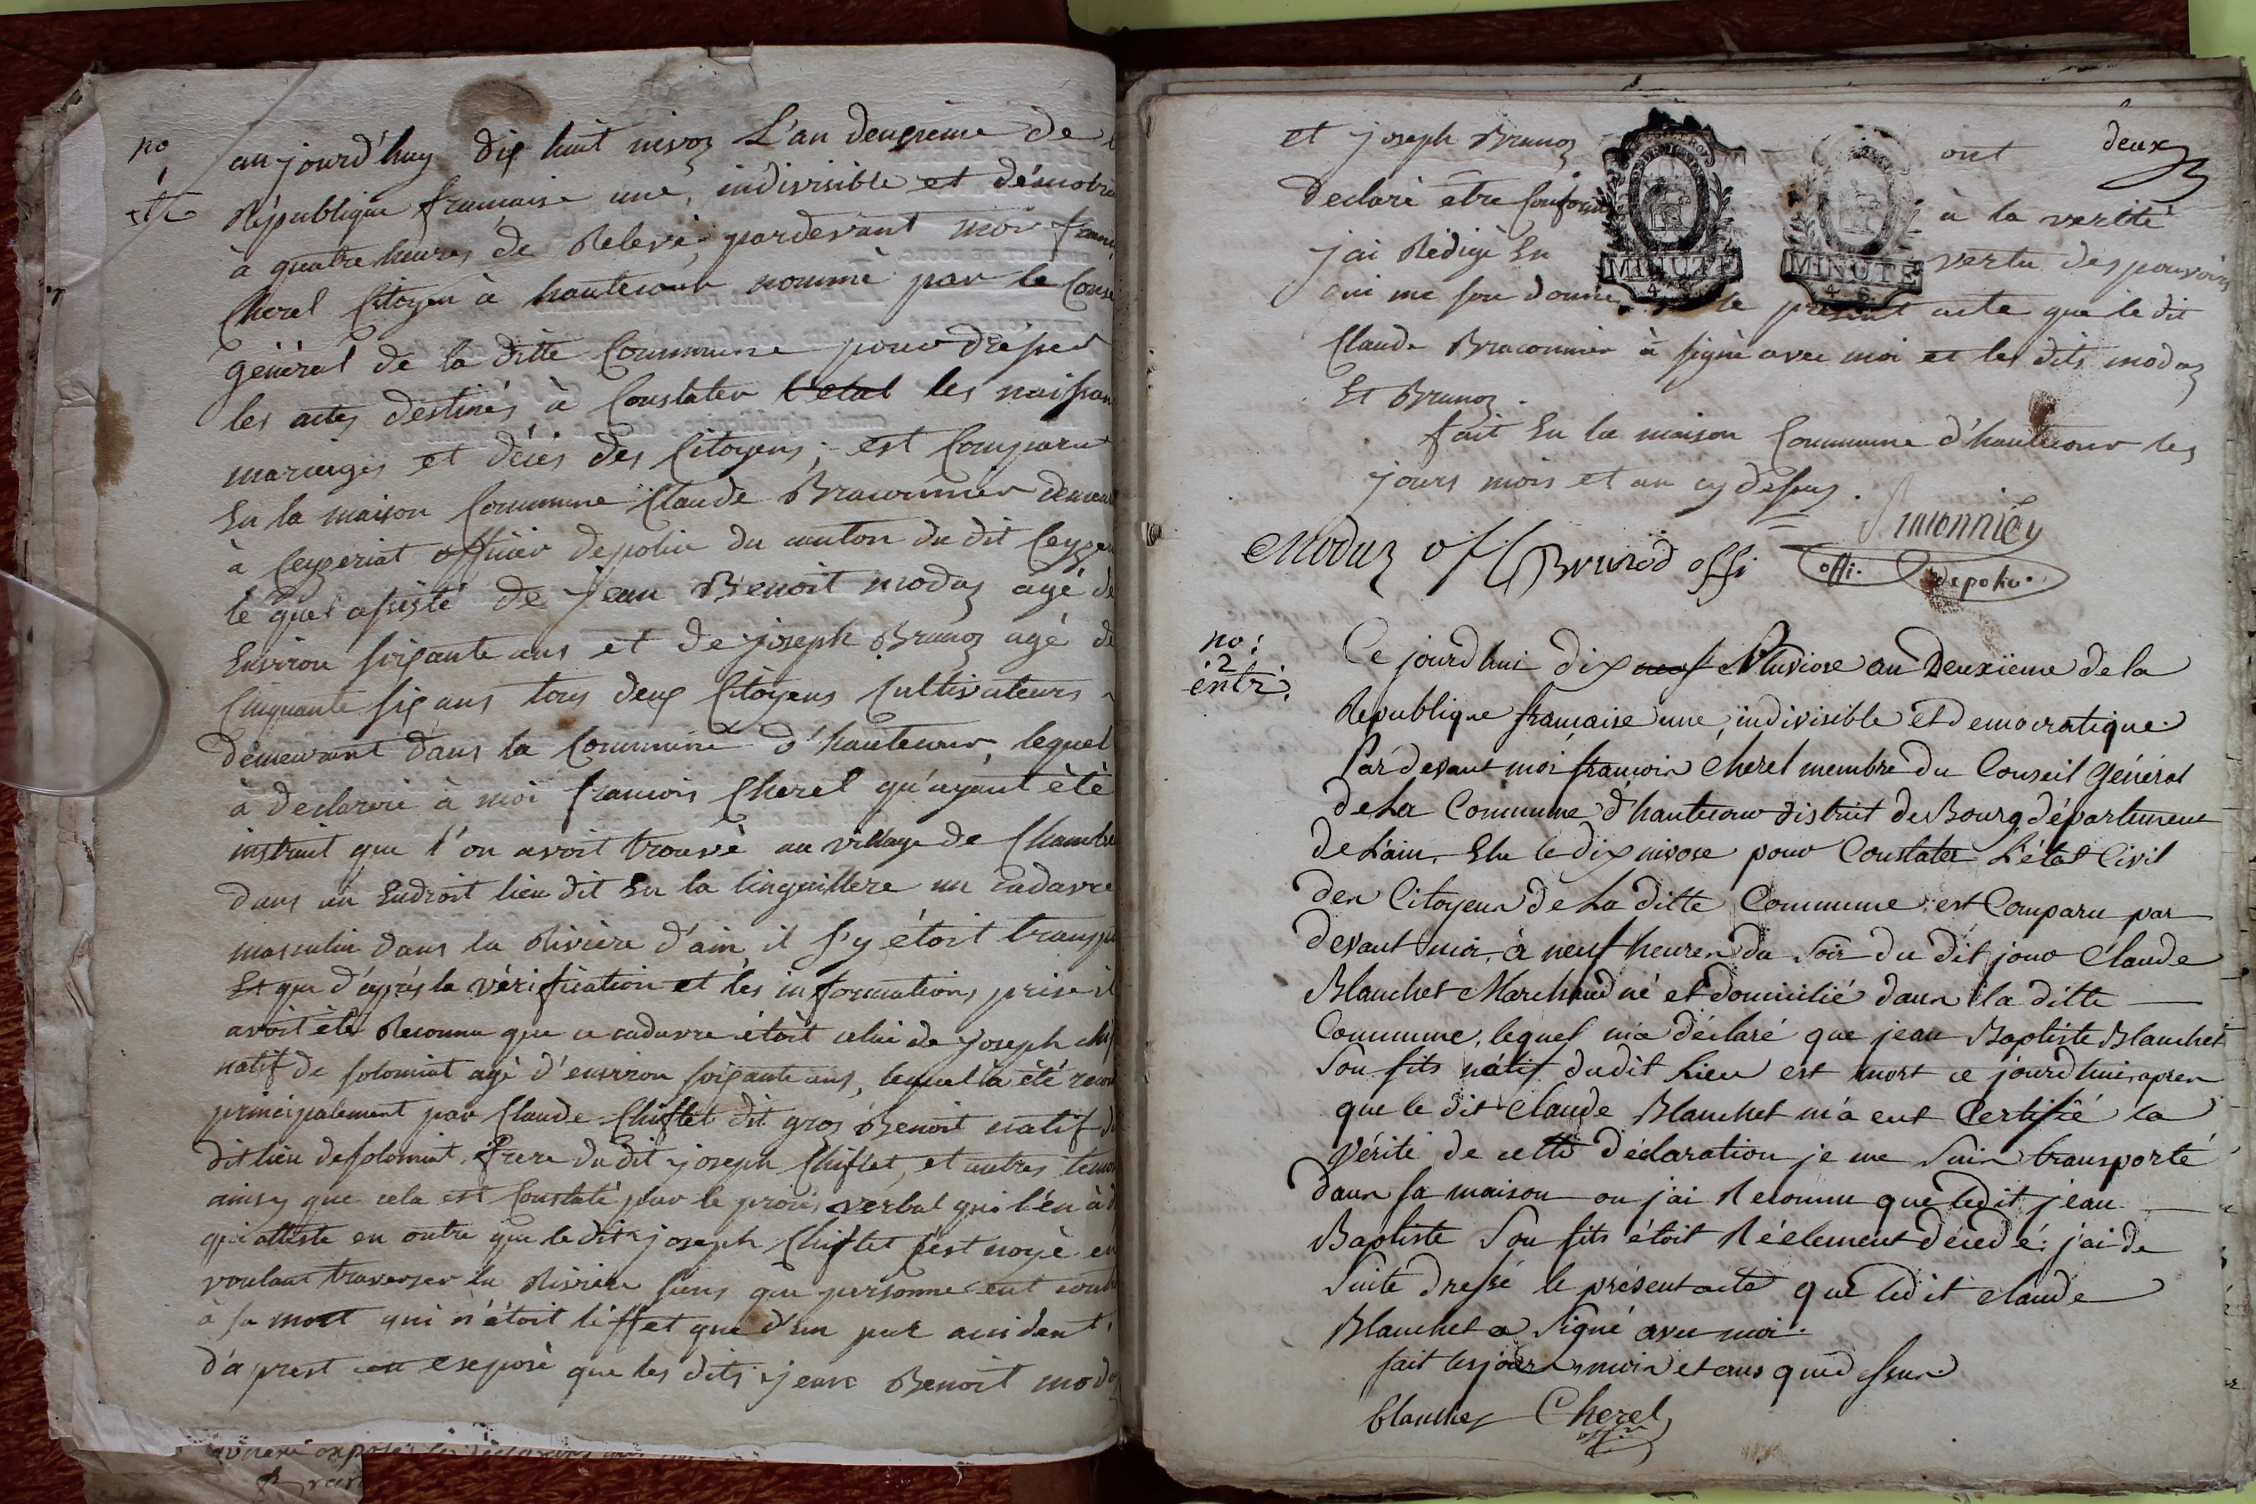 no
1
aujourd'huy dix huit nivoz L'an deuxieme de
République francaise une, indivisible et démotra
à quatre heures de Relevé, pardevant moi franc
Cherel Citoyen à hautecour nommé par le Conse
général de la ditte Commune pour dresser
les actes destinés à Constater l'etat les naissan
mariages et décès des Citoyens; est Comparu
En la maison Commune Claude Braconnier demeu
à Ceyzeriat officier de police du canton du dit Ceyze
le quel assisté de jean Benoit modas agé de
Environ soixante ans et de joseph Brunoz agé de
Cinquante six ans tous deux Citoyens Cultivateurs
demeurant dans la Commune d'hautecour, lequel
à declaré à moi francois Cherel qu'ayant été
instruit que l'on avoit trouvé au village de Chambo
dans un Endroit lieu dit En la Cinquillere un cadavre
masculin dans la Rivière d'ain il s'y étoit transpo
Et que d'après la vérification et les informations prise il
avoit été Reconnu que ce cadavre étoit celui de joseph chif
natif de solomiat agé d'environ soixante ans, lequel à été recon
principalement par Claude Chiflet dit gros Benoit natif du
dit lieu de solomiat, frere du dit joseph Chiflet, et autres temoi
ainsy que cela est Constaté par le procès verbal qui l'en à d
qui atteste en outre que le dit joseph Chiflet s'est noyé en
voulant traverser la Riviere sans que personne eut cont
à sa mort qui n'étoit l'effet que d'un pur accident,
d'aprest cet exposé que les dits jean Benoit moda
deux
et joseph Brunoz ont
declaré etre Conforme à la verité
j'ai Rédigé En vertu des pouvoirs
qui me son donné le présent acte que le dit
Claude Braconnier à signé avec moi et les dits modaz
Et Brunoz.
fait En la maison Commune d'hautecour les
jours mois et an cy dessus.
MINUTE
4 S
MINUTE
4 S
Moduz off Brunod offi
offi. de police
no:
2
entr.
Ce jourd'hui dix neuf Pluviose an Deuxiëme de la
Republique francaise une, indivisible et democratique.
Pardevant moi francois Cherel membre du Conseil Général
de La Commune d'hautecour district de Bourg département
de L'ain. Elu le dix nivose pour Constater L'état Civil
des Citoyens de La ditte Commune; est Comparu par
devant moi, à neuf heures du soir du dit jour Claude
Blanchet Marchand né et domicilié dans la ditte
Commune, lequel m'a déclaré que jean Baptiste Blanchet
son fils natif dudit Lieu est mort ce jourd'hui, apres
que le dit Claude Blanchet m'a eut Certifié la
Vérité de cette déclaration je me suis transporté
dans sa maison ou j'ai Reconnu que ledit jean
Baptiste son fils étoit Réelement décedé: j'ai de
suite dressé le présent acte que ledit claude
Blanchet a signé avec moi.
fait les jours, mois et ans que dessus.
blanchet Cherel